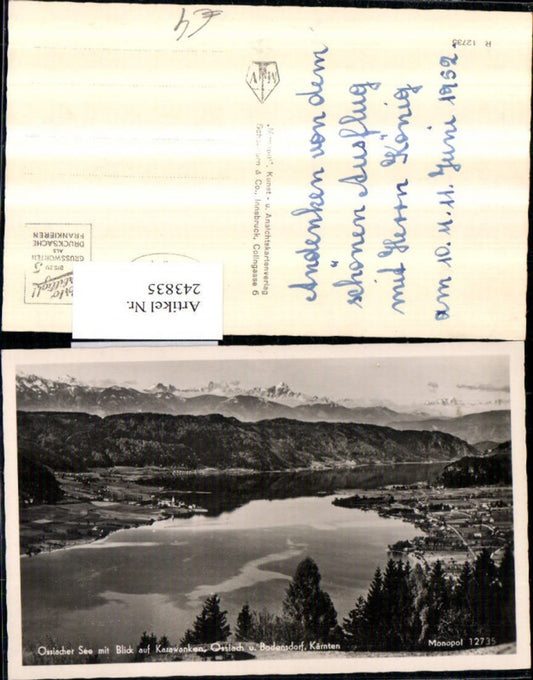 €4
R 12735
Andenken von dem
schönen Ausflug
mit Herrn König
am 10. u. 11. Juni 1952
Kunst - u. Ansichtskartenverlag
& Co., Innsbruck, Colingasse 6
BIS ZU 5
GRUSSWORTEN
ALS
DRUCKSACHE
FRANKIEREN
Artikel Nr.
243835
Ossiacher See mit Blick auf Karawanken, Ossiach u. Bodensdorf, Kärnten
Monopol 12735